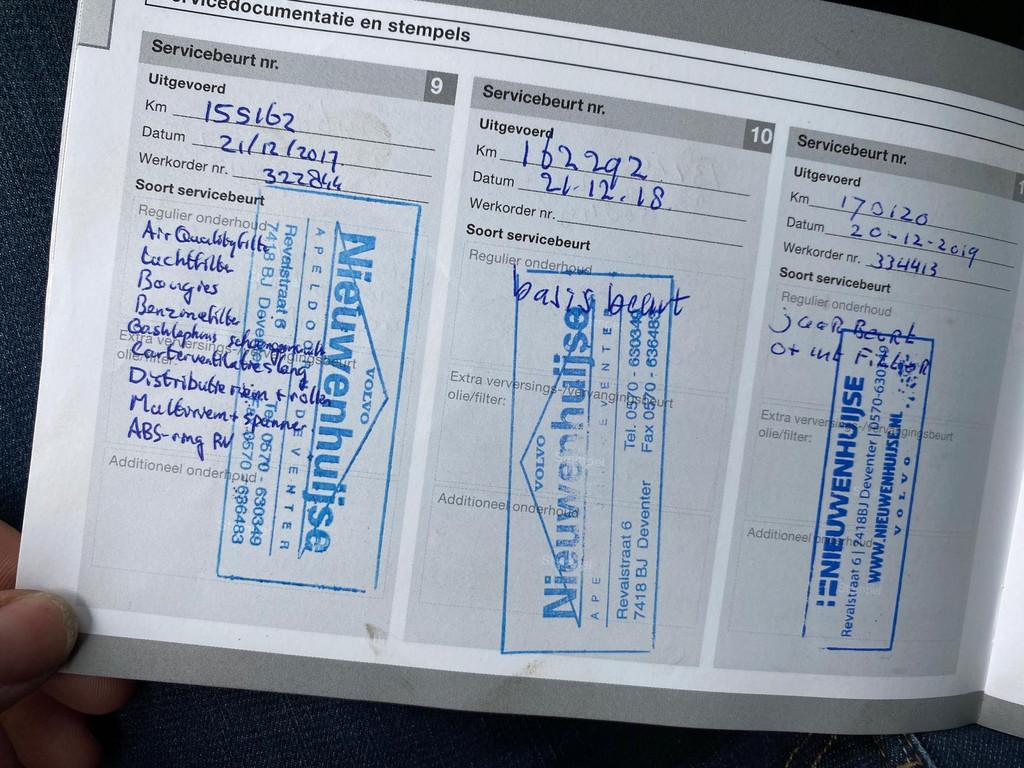 rvicedocumentatie en stempels
Servicebeurt nr.
9
Uitgevoerd
Km 155162
Datum 21/12/2017
Werkorder nr. 322844
Soort servicebeurt
Regulier onderhoud
Air Quality filter
Luchtfilter
Bougies
Benzinefilter
Extra verversings-/vervangingsbeurt
olie/filter:
Distributieriem + rollen
Multiriem + spanner
ABS-ring RV
Additioneel onderhoud
Nieuwenhuijse
VOLVO
APELDO
DEVENTER
Revalstraat 6
7418 BJ Deventer
Tel. 0570 - 630349
Fax 0570 - 636483
Servicebeurt nr.
10
Uitgevoerd
Km 162292
Datum 21-12-18
Werkorder nr.
Soort servicebeurt
Regulier onderhoud
basis beurt
Extra verversings-/vervangingsbeurt
olie/filter:
Additioneel onderhoud
VOLVO
Nieuwenhuijse
APE
VENTE
Revalstraat 6
Tel. 0570 - 63034
7418 BJ Deventer
Fax 0570 - 63648
Servicebeurt nr.
1
Uitgevoerd
Km 170120
Datum 20-12-2019
Werkorder nr. 334413
Soort servicebeurt
Regulier onderhoud
jaar Beurt
Extra verversings-/vervangingsbeurt
olie/filter:
Additioneel onderhoud
NIEUWENHUIJSE
Revalstraat 6 | 2418BJ Deventer | 0570-6307
WWW.NIEUWENHUIJSE.NL
VOLVO